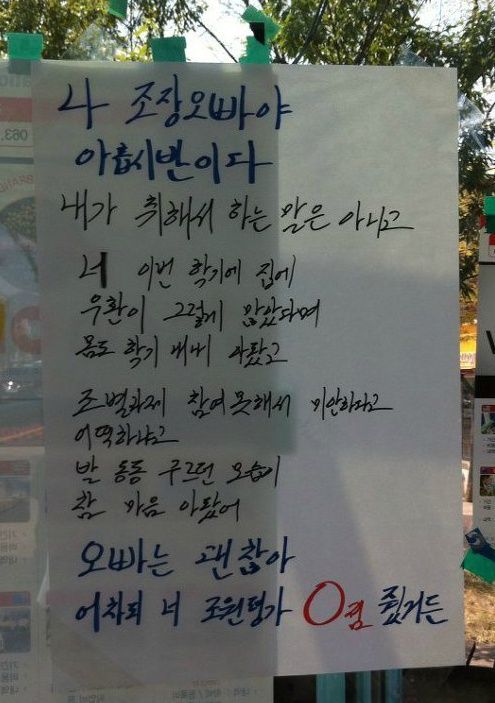 나 조장오빠야
아홉시반이다
내가 취해서 하는 말은 아니고
너 이번 학기에 집에
우환이 그렇게 많았다며
몸도 학기 내내 아팠고
조별과제 참여못해서 미안하다고
어떡하냐고
발 동동 구르던 모습이
참 마음 아팠어
오빠는 괜찮아
어차피 너 조원평가 0점 줬거든
063.